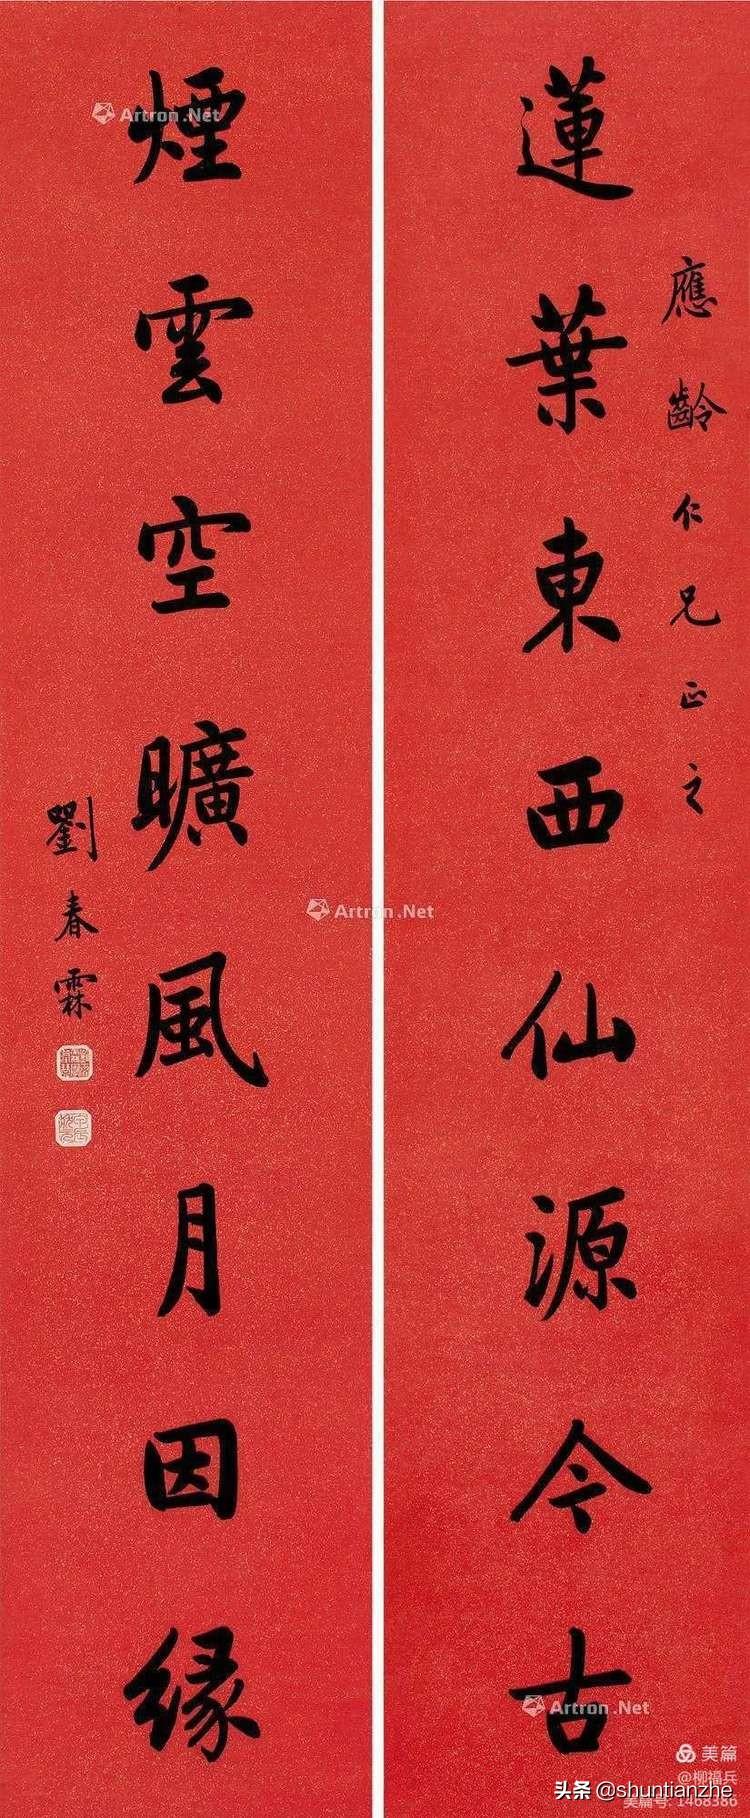 應齡仁兄正之
蓮葉東西仙源今古
煙雲空曠風月因緣
劉春霖
Artron.Net
Artron.Net
Artron.Net
美篇
@柳福兵
美篇号: 1468386
头条 @shuntianzhe